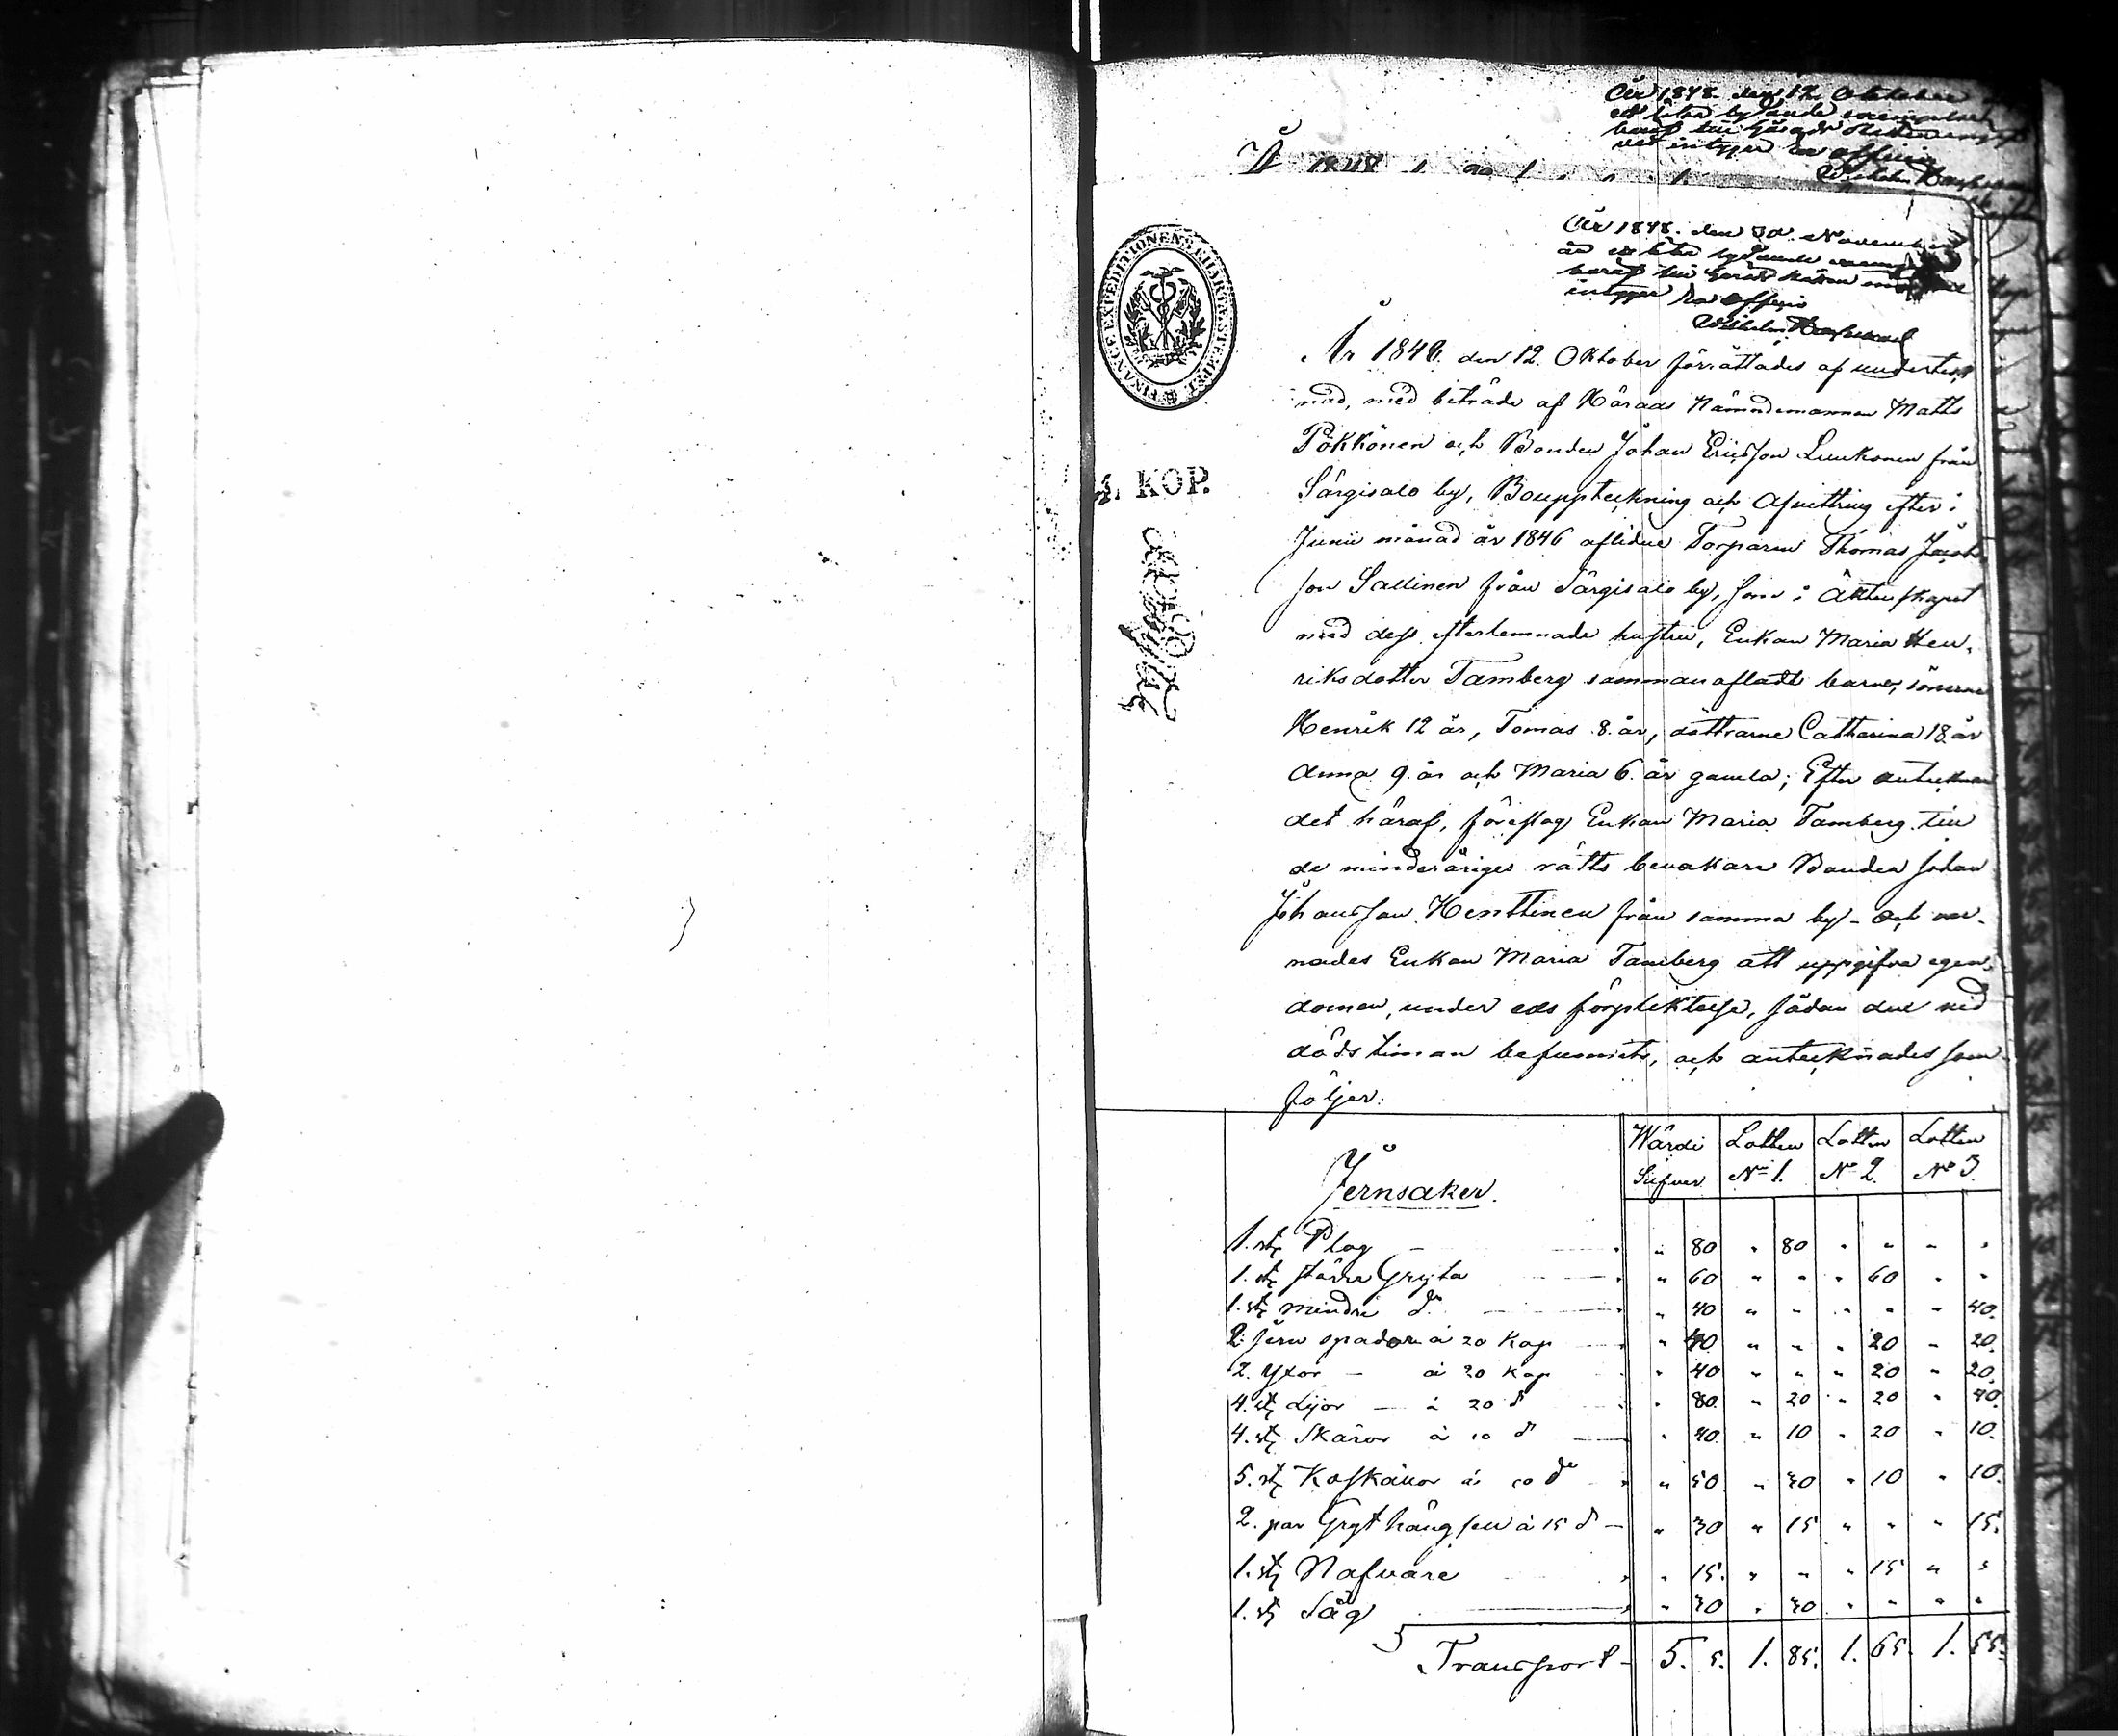 År 1848. den 12 Oktober
ett lika lydande exemplar
År 1848
År 1848. den 30. November
ett lika lydande
intygar Ex officio
Wilhelm
FINANCE EXPEDITIONENS CHARTÆ STEMPEL
KOP.
År 1848. den 12. Oktober förrättades af underteck
nad, med biträde af Härads Nämndemannen Matts
Pökkönen och Bonden Johan Ericsson Luukonen från
Särgisalo by, Bouppteckning och Afvittring efter i
Junii månad år 1846 aflidne Torparen Thomas Jacobs
son Sallinen från Särgisalo by, som i Äktenskapet
med dess efterlemnade hustru, Enkan Maria Hen,
riksdotter Tamberg sammanaflade barn, sönerne
Henrik 12 år, Tomas 8. år, döttrarne Catharina 18 år
Anna 9. år och Maria 6. år gamla; Efter antecknan
det häraf, föreslog Enkan Maria Tamberg till
de minderåriges rätts bevakare Bonden Johan
Johansson Henttinen från samma by - Och var-
nades Enkan Maria Tamberg att uppgifva egen-
domen, under eds förpliktelse, sådan den vid
dödstiman befunnits, och antecknades som
följer:
Jernsaker. Wärdi Silfver Lotten N° 1. Lotten N° 2. Lotten N° 3.
1. st Plog - " 80 " 80 " " " "
1. st större Gryta " 60 " " " 60 " "
1. st mindre d° " 40 " " " " " 40.
2. Jern spadar à 20 Kop " 40 " " " 20 " 20.
2. Yxor - à 20 Kop " 40 " " " 20 " 20.
4. st Lijor - à 20 d° " 80. " 20 " 20 " 40.
4. st Skäror à 10 d° " 40. " 10 " 20 " 10.
5. st Koskällor à 10 d° " 50. " 30 " 10 " 10.
2. par Gryt hängslen à 15 d° - " 30 " 15 " " " 15.
1. st Nafvare " 15. " " " 15 " "
1. st Såg " 30 " 30 " " " "
Transport - 5. 5. 1. 85. 1. 65. 1. 55.